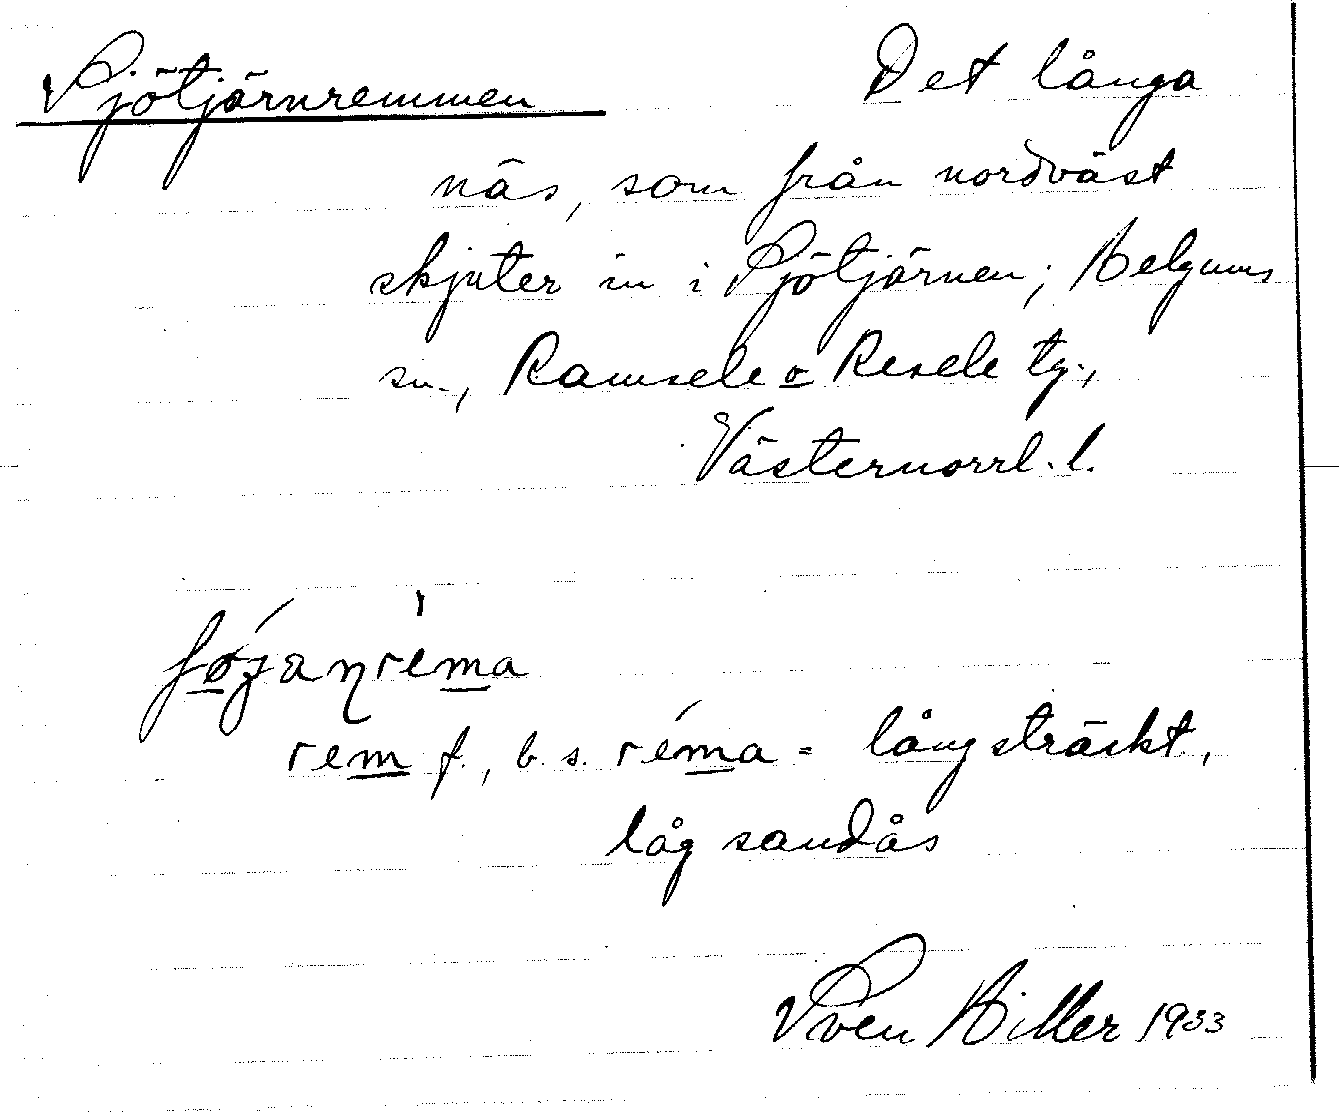 Sjötjärnremmen Det långa
näs, som från nordväst
skjuter in i Sjötjärnen; Helgums
sn., Ramsele o Resele tg.,
Västernorrl. l.
rem f., b. s. réma = långsträckt,
låg sandås
Sven Hiller 1933